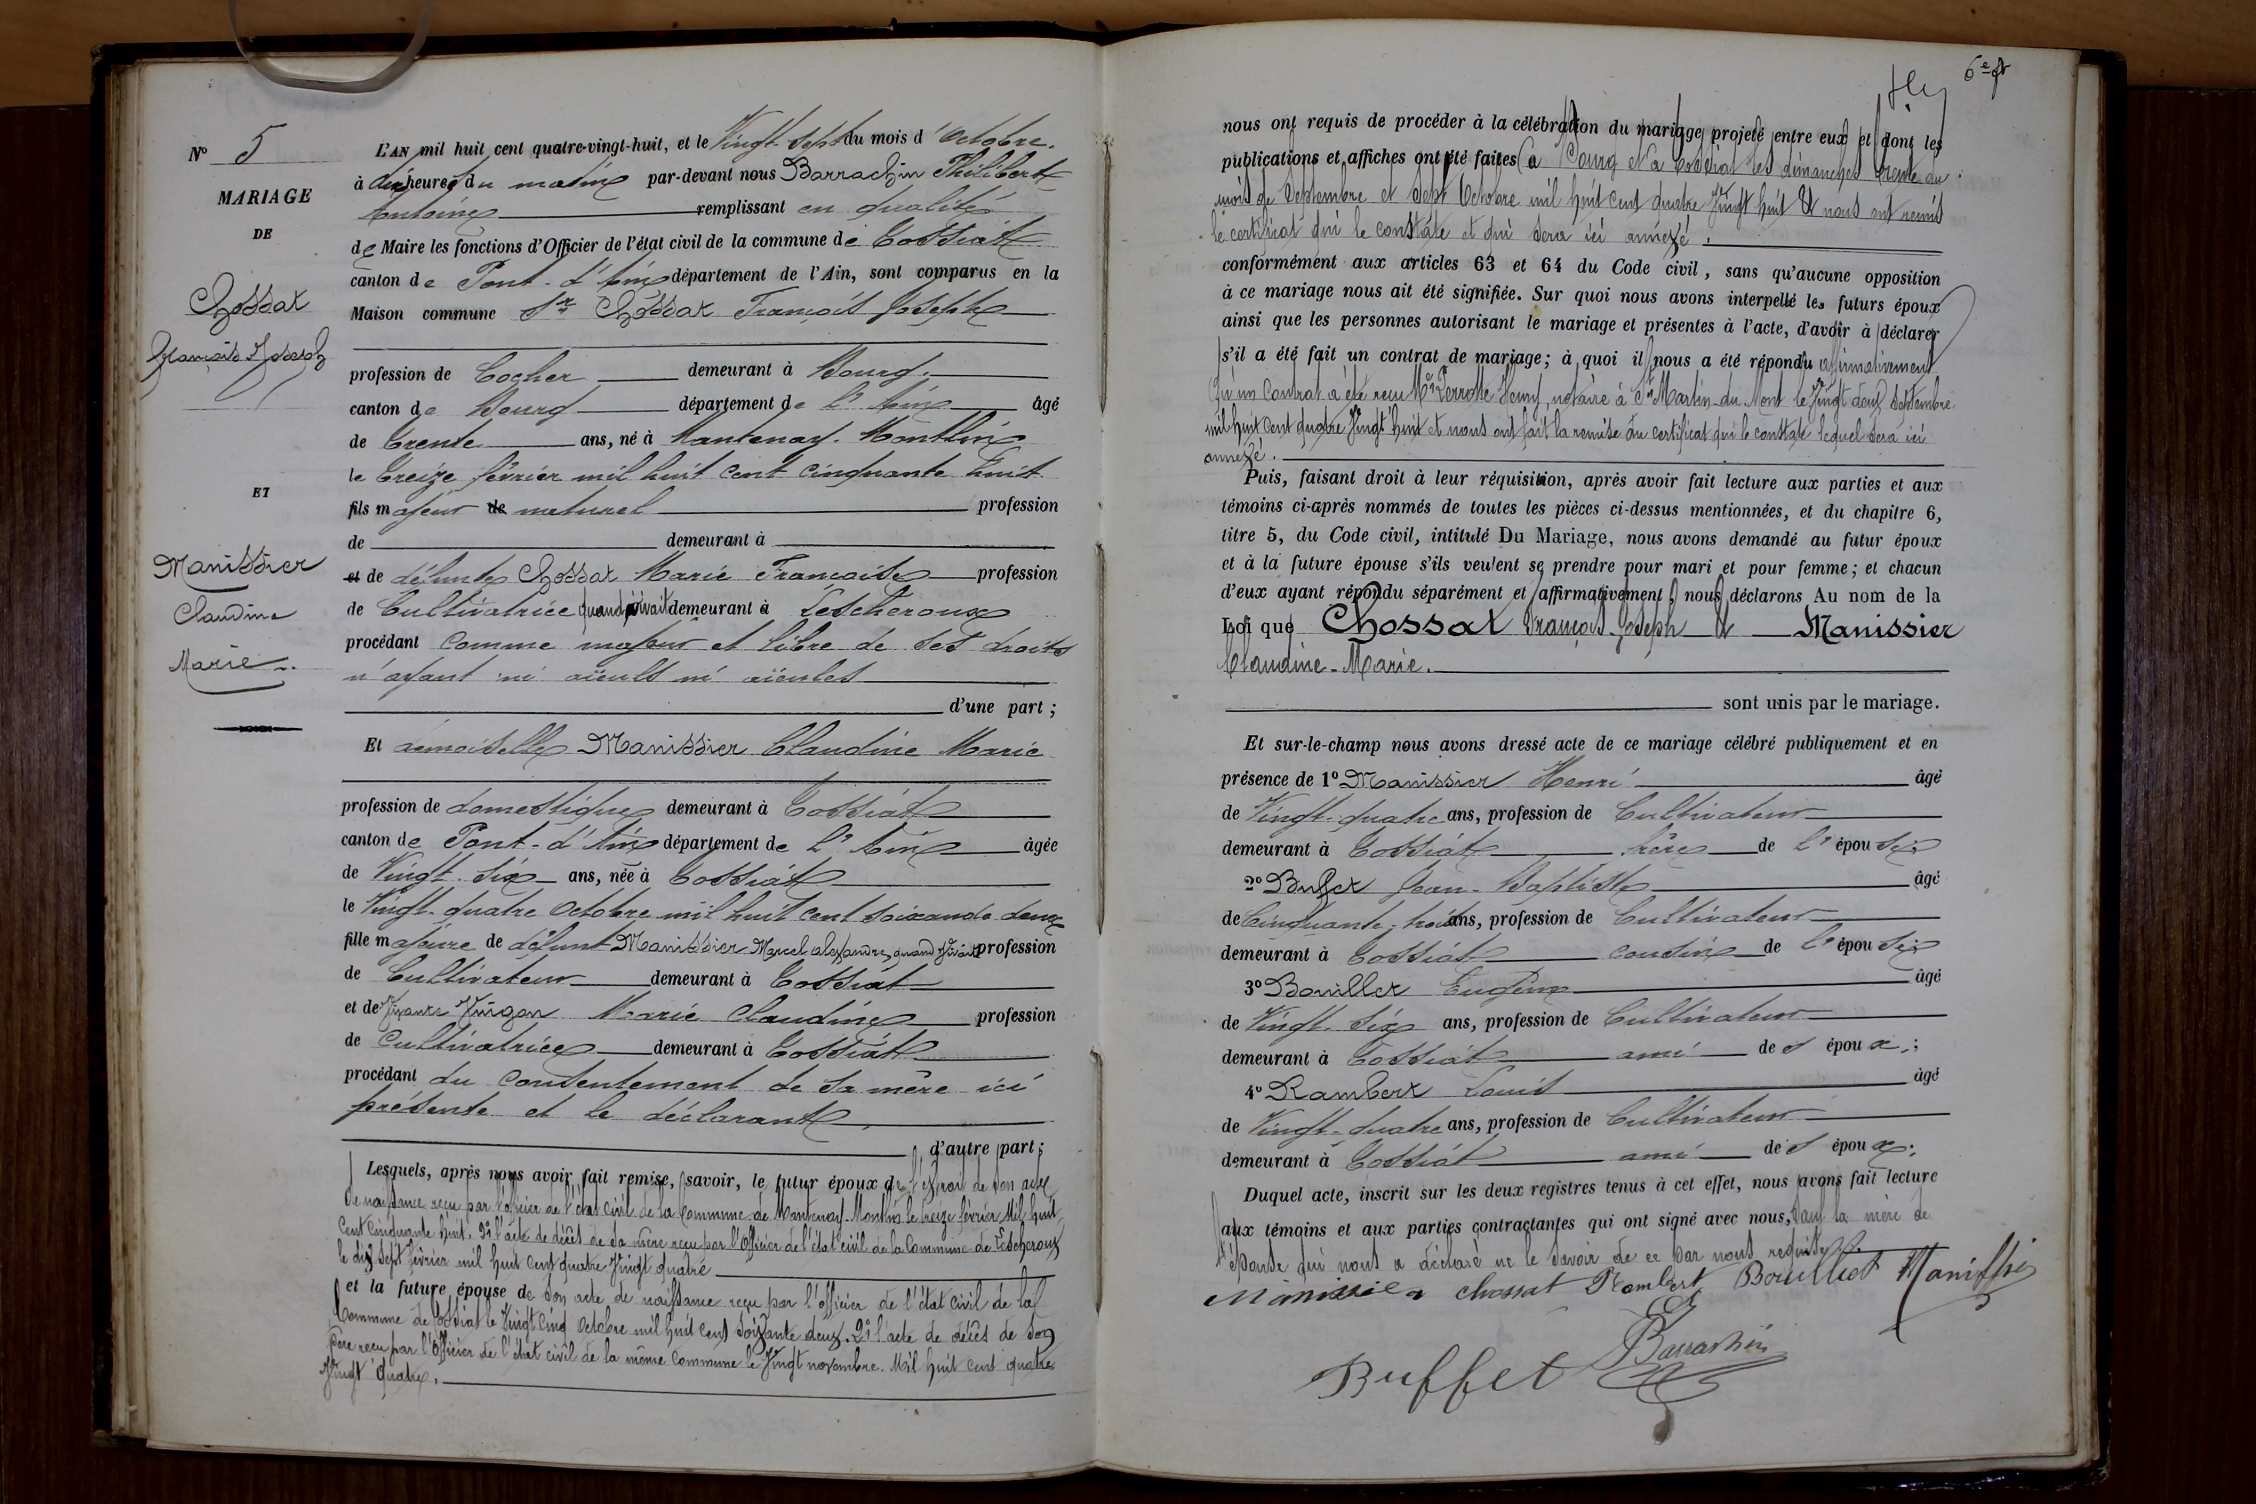 N° 5
MARIAGE
DE
Chossat
François Joseph
ET
Manissier
Claudine
Marie
L'AN mil huit cent quatre-vingt-huit, et le Vingt-Sept du mois d'Octobre
à dix heures du matin par-devant nous Barrachin Philibert
Antoine remplissant en qualité
de Maire les fonctions d'Officier de l'état civil de la commune de Tossiat
canton de Pont-d'Ain département de l'Ain, sont comparus en la
Maison commune Sr Chossat François Joseph
profession de Cocher demeurant à Bourg
canton de Bourg département de l'Ain âgé
de trente ans, né à Mantenay-Montlin
le treize février mil huit cent cinquante huit
fils majeur de naturel profession
de demeurant à
et de défunte Chossat Marie Françoise profession
de Cultivatrice quand vivait demeurant à Lescheroux
procédant comme majeur et libre de ses droits
n'ayant ni aïeuls ni aïeules
d'une part ;
Et demoiselle Manissier Claudine Marie
profession de domestique demeurant à Tossiat
canton de Pont-d'Ain département de l'Ain âgée
de Vingt-Six ans, née à Tossiat
le Vingt-quatre Octobre mil huit cent soixante deux
fille majeure de défunt Manissier Marcel alexandre, quand vivait profession
de Cultivateur demeurant à Tossiat
et de Vivante Vuigon Marie Claudine profession
de Cultivatrice demeurant à Tossiat
procédant du consentement de sa mère ici
présente et le déclarant
d'autre part ;
Lesquels, après nous avoir fait remise, savoir, le futur époux de l'extrait de son acte
de naissance reçu par l'officier de l'état civil de la Commune de Mantenay-Montlin le treize février Mil huit
Cent Cinquante huit. 2° l'acte de décès de sa mère reçu par l'Officier de l'état civil de la Commune de Lescheroux
le dix sept février mil huit cent quatre Vingt quatre
et la future épouse de son acte de naissance reçu par l'officier de l'état civil de la
Commune de Tossiat le Vingt cinq Octobre mil huit cent soixante deux. 2° l'acte de décès de son
père reçu par l'Officier de l'état civil de la même commune le Vingt novembre. Mil huit cent quatre
Vingt quatre.
6e
nous ont requis de procéder à la célébration du mariage projeté entre eux et dont les
publications et affiches ont été faites à Bourg et à Tossiat les dimanches trente du
mois de Septembre et Sept Octobre mil huit cent quatre Vingt huit Et nous ont remis
le certificat qui le constate et qui sera ici annexé.
conformément aux articles 63 et 64 du Code civil, sans qu'aucune opposition
à ce mariage nous ait été signifiée. Sur quoi nous avons interpellé les futurs époux
ainsi que les personnes autorisant le mariage et présentes à l'acte, d'avoir à déclarer
s'il a été fait un contrat de mariage ; à quoi il nous a été répondu affirmativement
qu'un Contrat a été reçu Me Perrotte Henry, notaire à St Martin-du-Mont le Vingt deux Septembre
mil huit cent quatre Vingt huit et nous ont fait la remise du certificat qui le constate lequel sera ici
annexé.
Puis, faisant droit à leur réquisition, après avoir fait lecture aux parties et aux
témoins ci-après nommés de toutes les pièces ci-dessus mentionnées, et du chapitre 6,
titre 5, du Code civil, intitulé Du Mariage, nous avons demandé au futur époux
et à la future épouse s'ils veulent se prendre pour mari et pour femme ; et chacun
d'eux ayant répondu séparément et affirmativement, nous déclarons Au nom de la
Loi que Chossat François Joseph et Manissier
Claudine-Marie.
sont unis par le mariage.
Et sur-le-champ nous avons dressé acte de ce mariage célébré publiquement et en
présence de 1° Manissier Henri âgé
de Vingt-quatre ans, profession de Cultivateur
demeurant à Tossiat frère de l'épouse;
2° Buffet Jean-Baptiste âgé
de Cinquante-trois ans, profession de Cultivateur
demeurant à Tossiat cousin de l'épouse;
3° Bouillet Eugène âgé
de Vingt-Six ans, profession de Cultivateur
demeurant à Tossiat ami des époux;
4° Rambert Louis âgé
de Vingt-quatre ans, profession de Cultivateur
demeurant à Tossiat ami des époux;
Duquel acte, inscrit sur les deux registres tenus à cet effet, nous avons fait lecture
aux témoins et aux parties contractantes qui ont signé avec nous, sauf la mère de
l'épouse qui nous a déclaré ne le savoir de ce par nous requise.
Manissier chossat Rambert Bouillet Manissier
Barrachin
Buffet